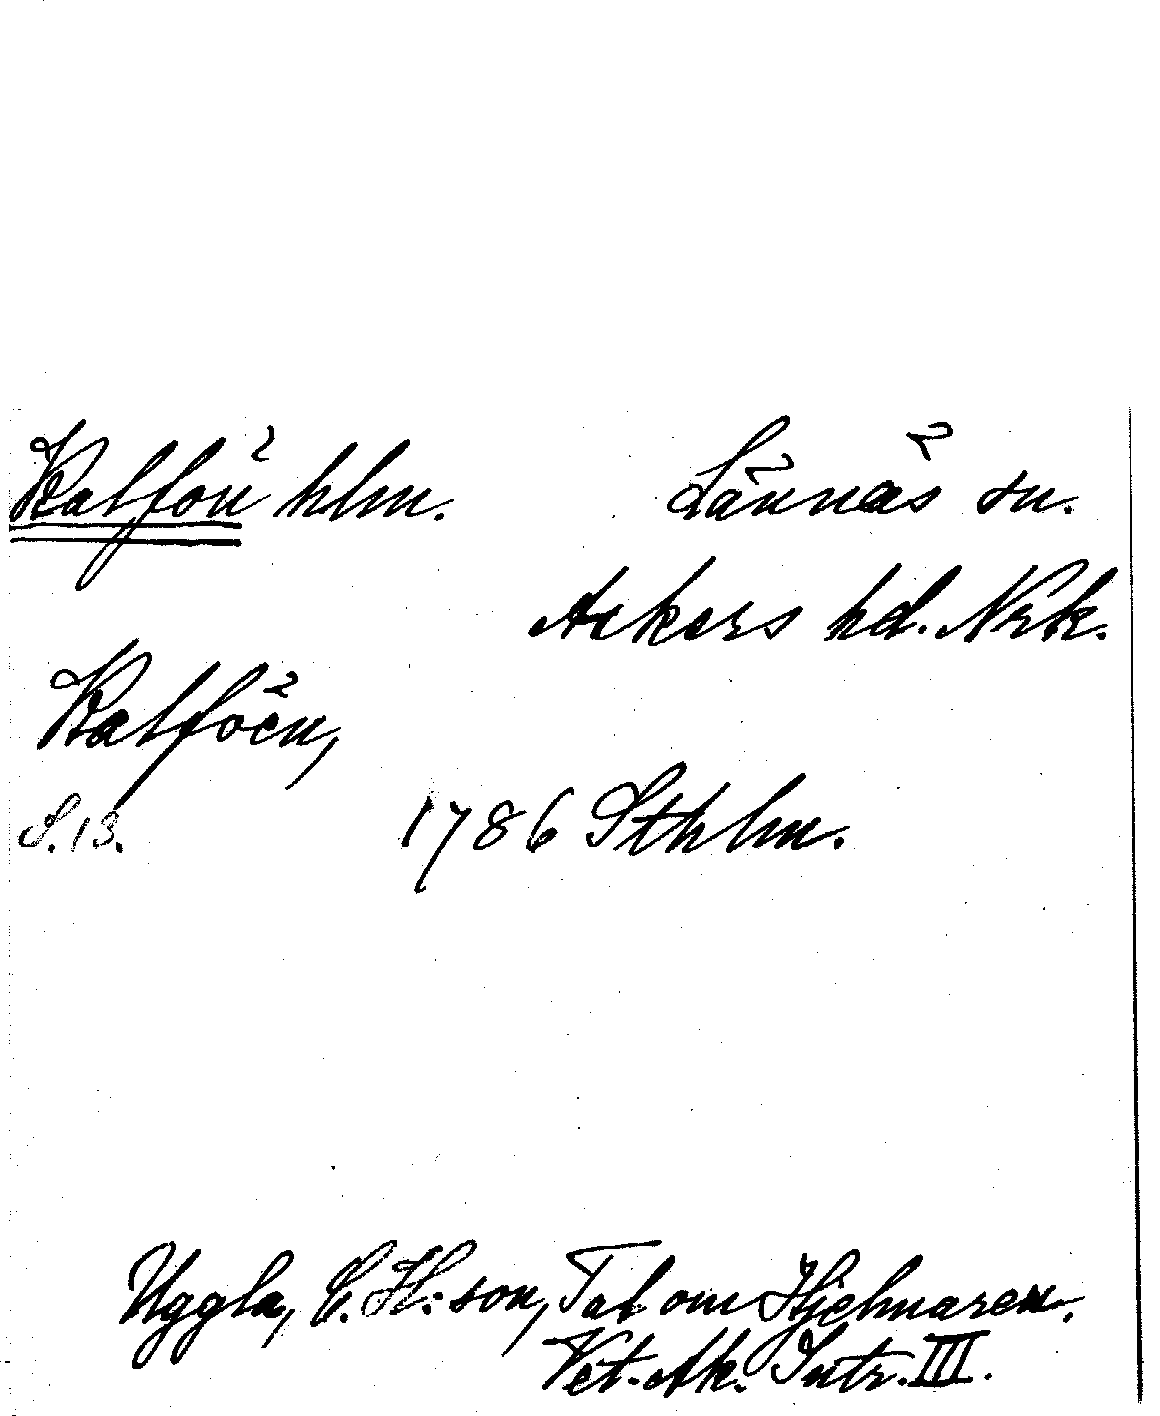 Kalfön hlm. Lännäs sn.
Askers hd. Nrk.
Kalföen,
S. 13. 1786 Sthlm.
Uggla, C. H:son, Tal om Hjelmaren.
Vet. Ak. Intr. III.